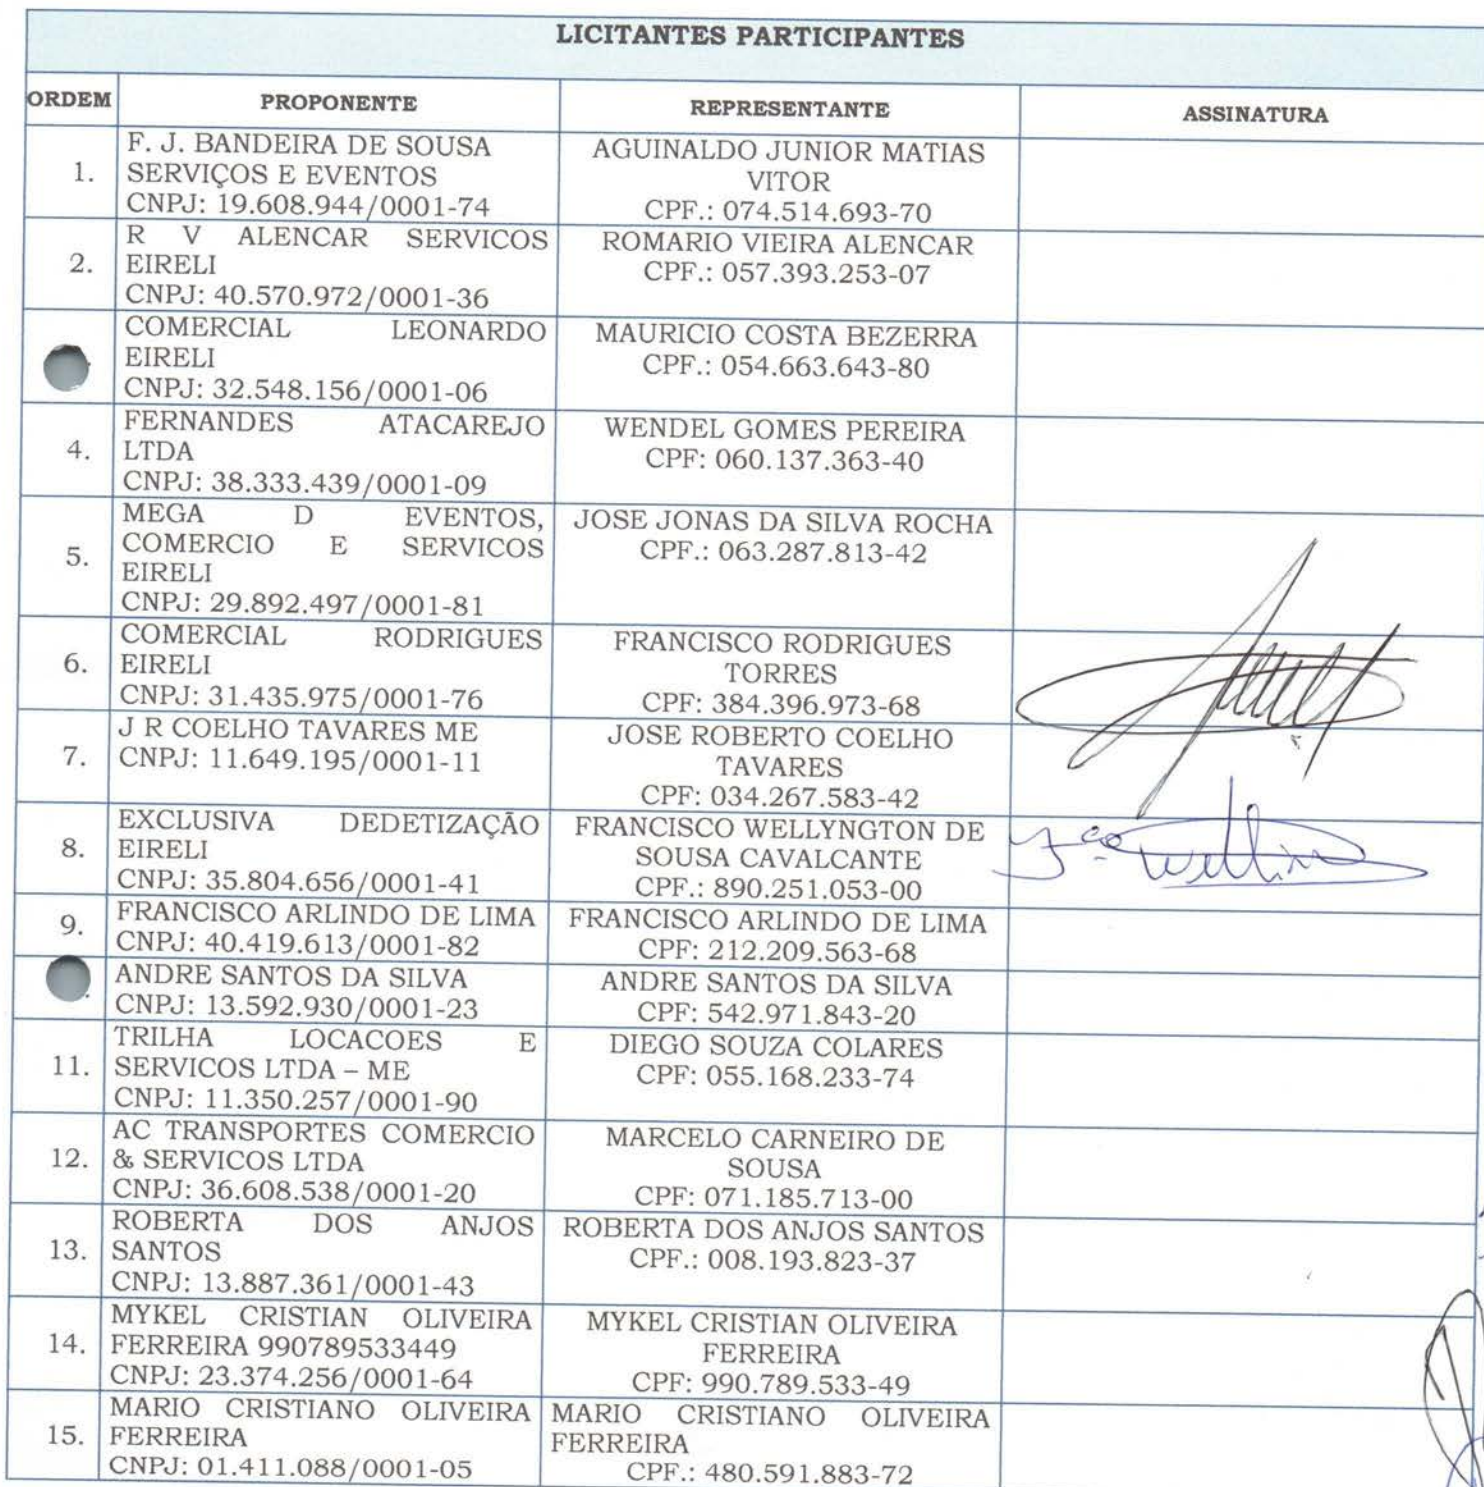 LICITANTES PARTICIPANTES
ORDEM PROPONENTE REPRESENTANTE ASSINATURA
1. F. J. BANDEIRA DE SOUSA
SERVIÇOS E EVENTOS
CNPJ: 19.608.944/0001-74
AGUINALDO JUNIOR MATIAS
VITOR
CPF.: 074.514.693-70
2. R V ALENCAR SERVICOS
EIRELI
CNPJ: 40.570.972/0001-36
ROMARIO VIEIRA ALENCAR
CPF.: 057.393.253-07
COMERCIAL LEONARDO
EIRELI
CNPJ: 32.548.156/0001-06
MAURICIO COSTA BEZERRA
CPF.: 054.663.643-80
4. FERNANDES ATACAREJO
LTDA
CNPJ: 38.333.439/0001-09
WENDEL GOMES PEREIRA
CPF: 060.137.363-40
5. MEGA D EVENTOS,
COMERCIO E SERVICOS
EIRELI
CNPJ: 29.892.497/0001-81
JOSE JONAS DA SILVA ROCHA
CPF.: 063.287.813-42
6. COMERCIAL RODRIGUES
EIRELI
CNPJ: 31.435.975/0001-76
FRANCISCO RODRIGUES
TORRES
CPF: 384.396.973-68
7. J R COELHO TAVARES ME
CNPJ: 11.649.195/0001-11
JOSE ROBERTO COELHO
TAVARES
CPF: 034.267.583-42
8. EXCLUSIVA DEDETIZAÇÃO
EIRELI
CNPJ: 35.804.656/0001-41
FRANCISCO WELLYNGTON DE
SOUSA CAVALCANTE
CPF.: 890.251.053-00
9. FRANCISCO ARLINDO DE LIMA
CNPJ: 40.419.613/0001-82
FRANCISCO ARLINDO DE LIMA
CPF: 212.209.563-68
ANDRE SANTOS DA SILVA
CNPJ: 13.592.930/0001-23
ANDRE SANTOS DA SILVA
CPF: 542.971.843-20
11. TRILHA LOCACOES E
SERVICOS LTDA – ME
CNPJ: 11.350.257/0001-90
DIEGO SOUZA COLARES
CPF: 055.168.233-74
12. AC TRANSPORTES COMERCIO
& SERVICOS LTDA
CNPJ: 36.608.538/0001-20
MARCELO CARNEIRO DE
SOUSA
CPF: 071.185.713-00
13. ROBERTA DOS ANJOS
SANTOS
CNPJ: 13.887.361/0001-43
ROBERTA DOS ANJOS SANTOS
CPF.: 008.193.823-37
14. MYKEL CRISTIAN OLIVEIRA
FERREIRA 990789533449
CNPJ: 23.374.256/0001-64
MYKEL CRISTIAN OLIVEIRA
FERREIRA
CPF: 990.789.533-49
15. MARIO CRISTIANO OLIVEIRA
FERREIRA
CNPJ: 01.411.088/0001-05
MARIO CRISTIANO OLIVEIRA
FERREIRA
CPF.: 480.591.883-72